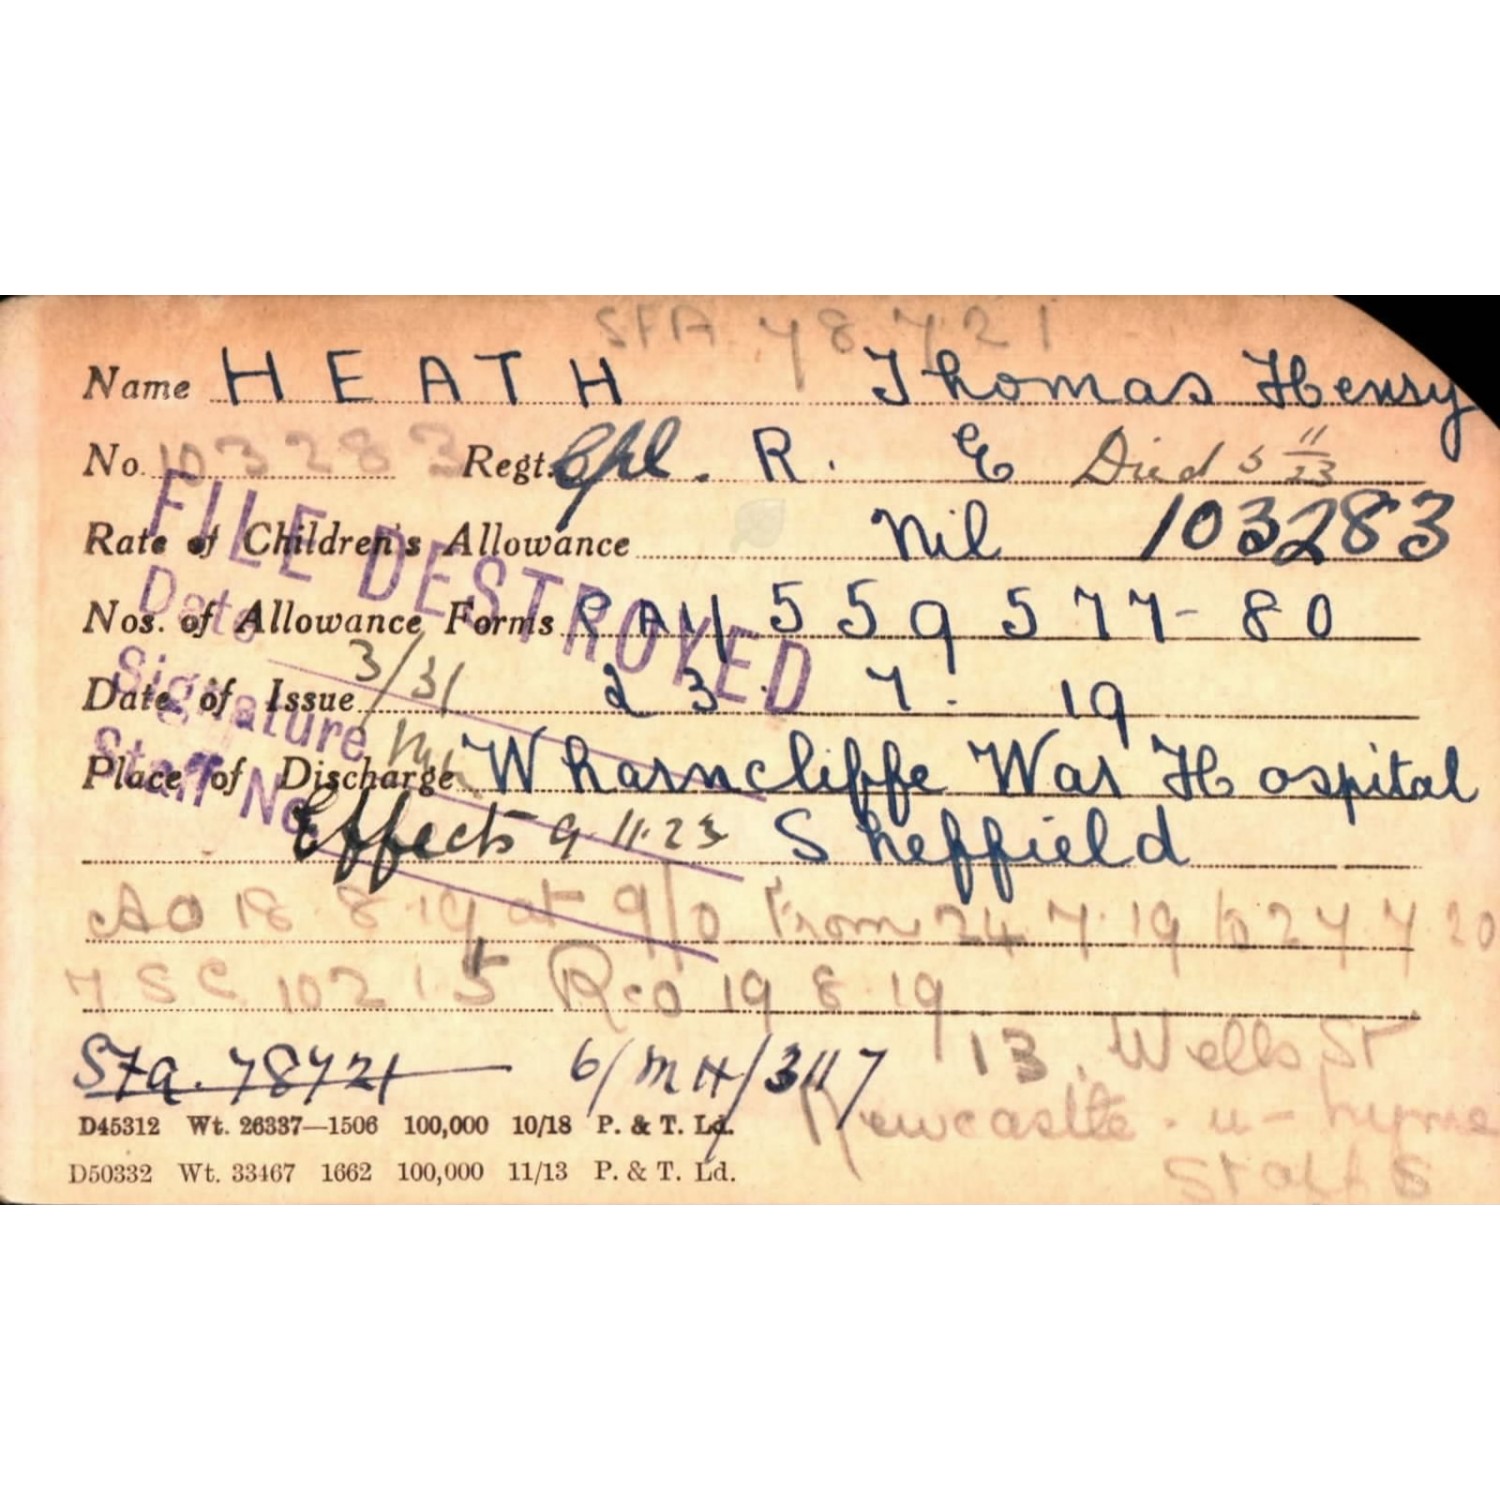 SFA 78721
Name HEATH Thomas Henry
No. 103283 Regt. Cpl. R. E Died 5 11/23
Rate of Children's Allowance Nil 103283
Nos. of Allowance Forms RAY 559577-80
Date of Issue 23. 7. 19
Place of Discharge Wharncliffe War Hospital
Effects 9.11.23 Sheffield
FILE DESTROYED
Date 3/31
Signature
Staff No.
AO 18.8.19 at 9/0 From 24.7.19 to 27.7.20
7SC 10215 Rco 19 8 19
Sta. 78721 6/MH/3117
13, Wells St
Newcastle-u-Lyme
Staffs
D45312 Wt. 26337—1506 100,000 10/18 P. & T. Ld.
D50332 Wt. 33467 1662 100,000 11/13 P. & T. Ld.